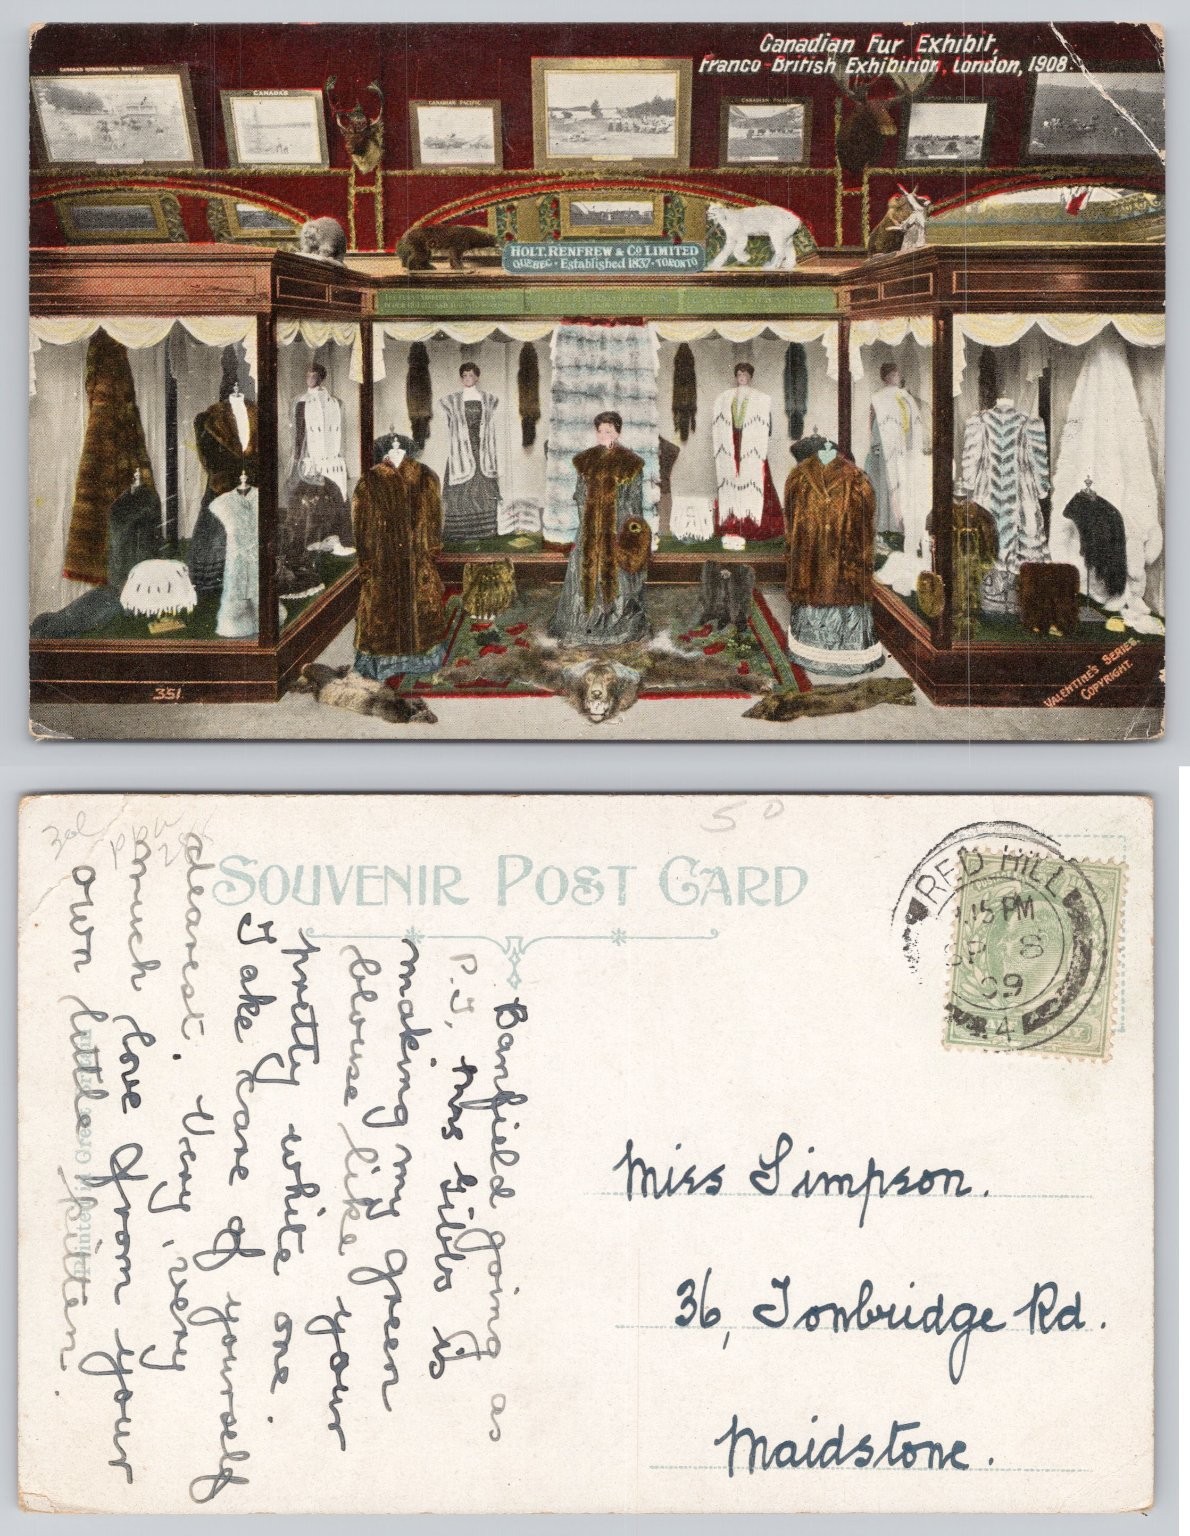 Canadian Fur Exhibit,
Franco-British Exhibition, London, 1908.
CANADIAN PACIFIC
CANADIAN PACIFIC
HOLT, RENFREW & CO LIMITED
QUEBEC · Established 1837 · TORONTO
351.
VALENTINE'S SERIES.
COPYRIGHT.
50
SOUVENIR POST CARD
RED HILL
.15 PM
SP 8
09
4
Banfield going as
P.T, Mrs Gibbs is
making my green
blouse like your
pretty white one.
Take care of yourself
dearest. Very, very
much love from your
own little kitten.
Miss Simpson.
36, Tonbridge Rd.
Maidstone.